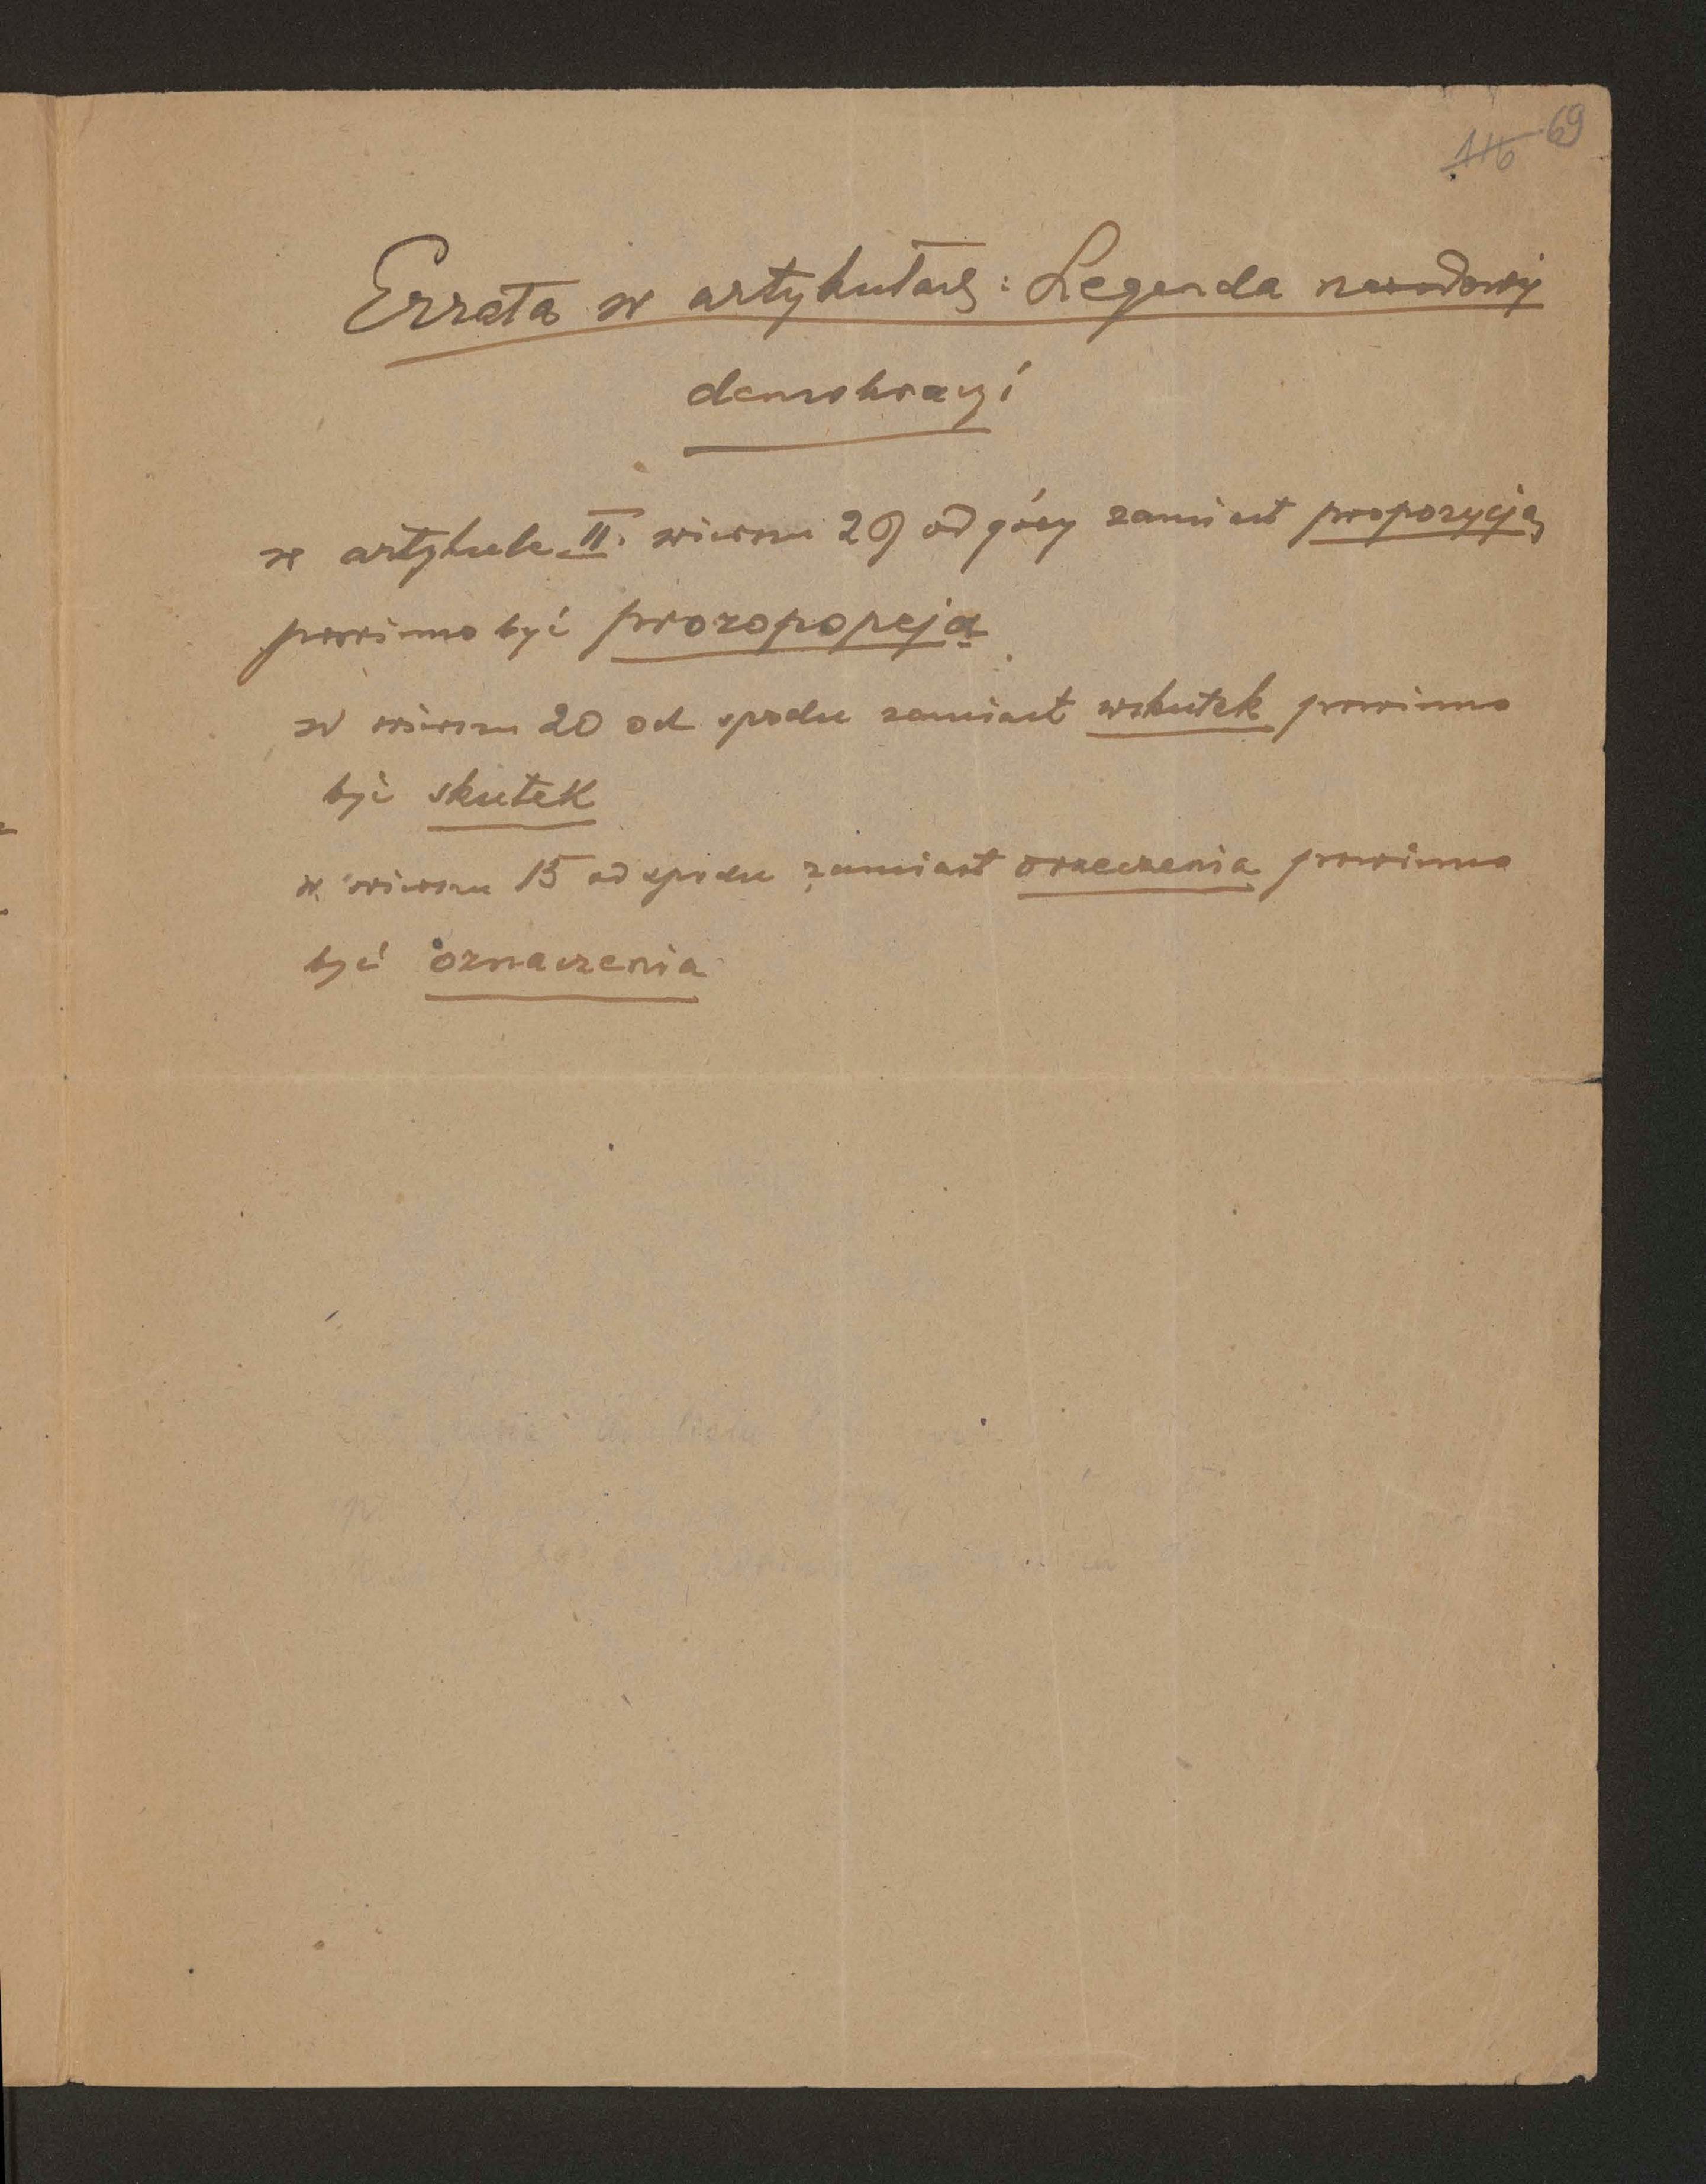 116 69
Errata w artykułach: Legenda narodowej
demokracyi
w artykule II. wierszu 29 od góry zamiast propozycją
powinno być prozopopeją
w wierszu 20 od spodu zamiast wskutek powinno
być skutek
w wierszu 15 od spodu zamiast orzeczenia powinno
być oznaczenia